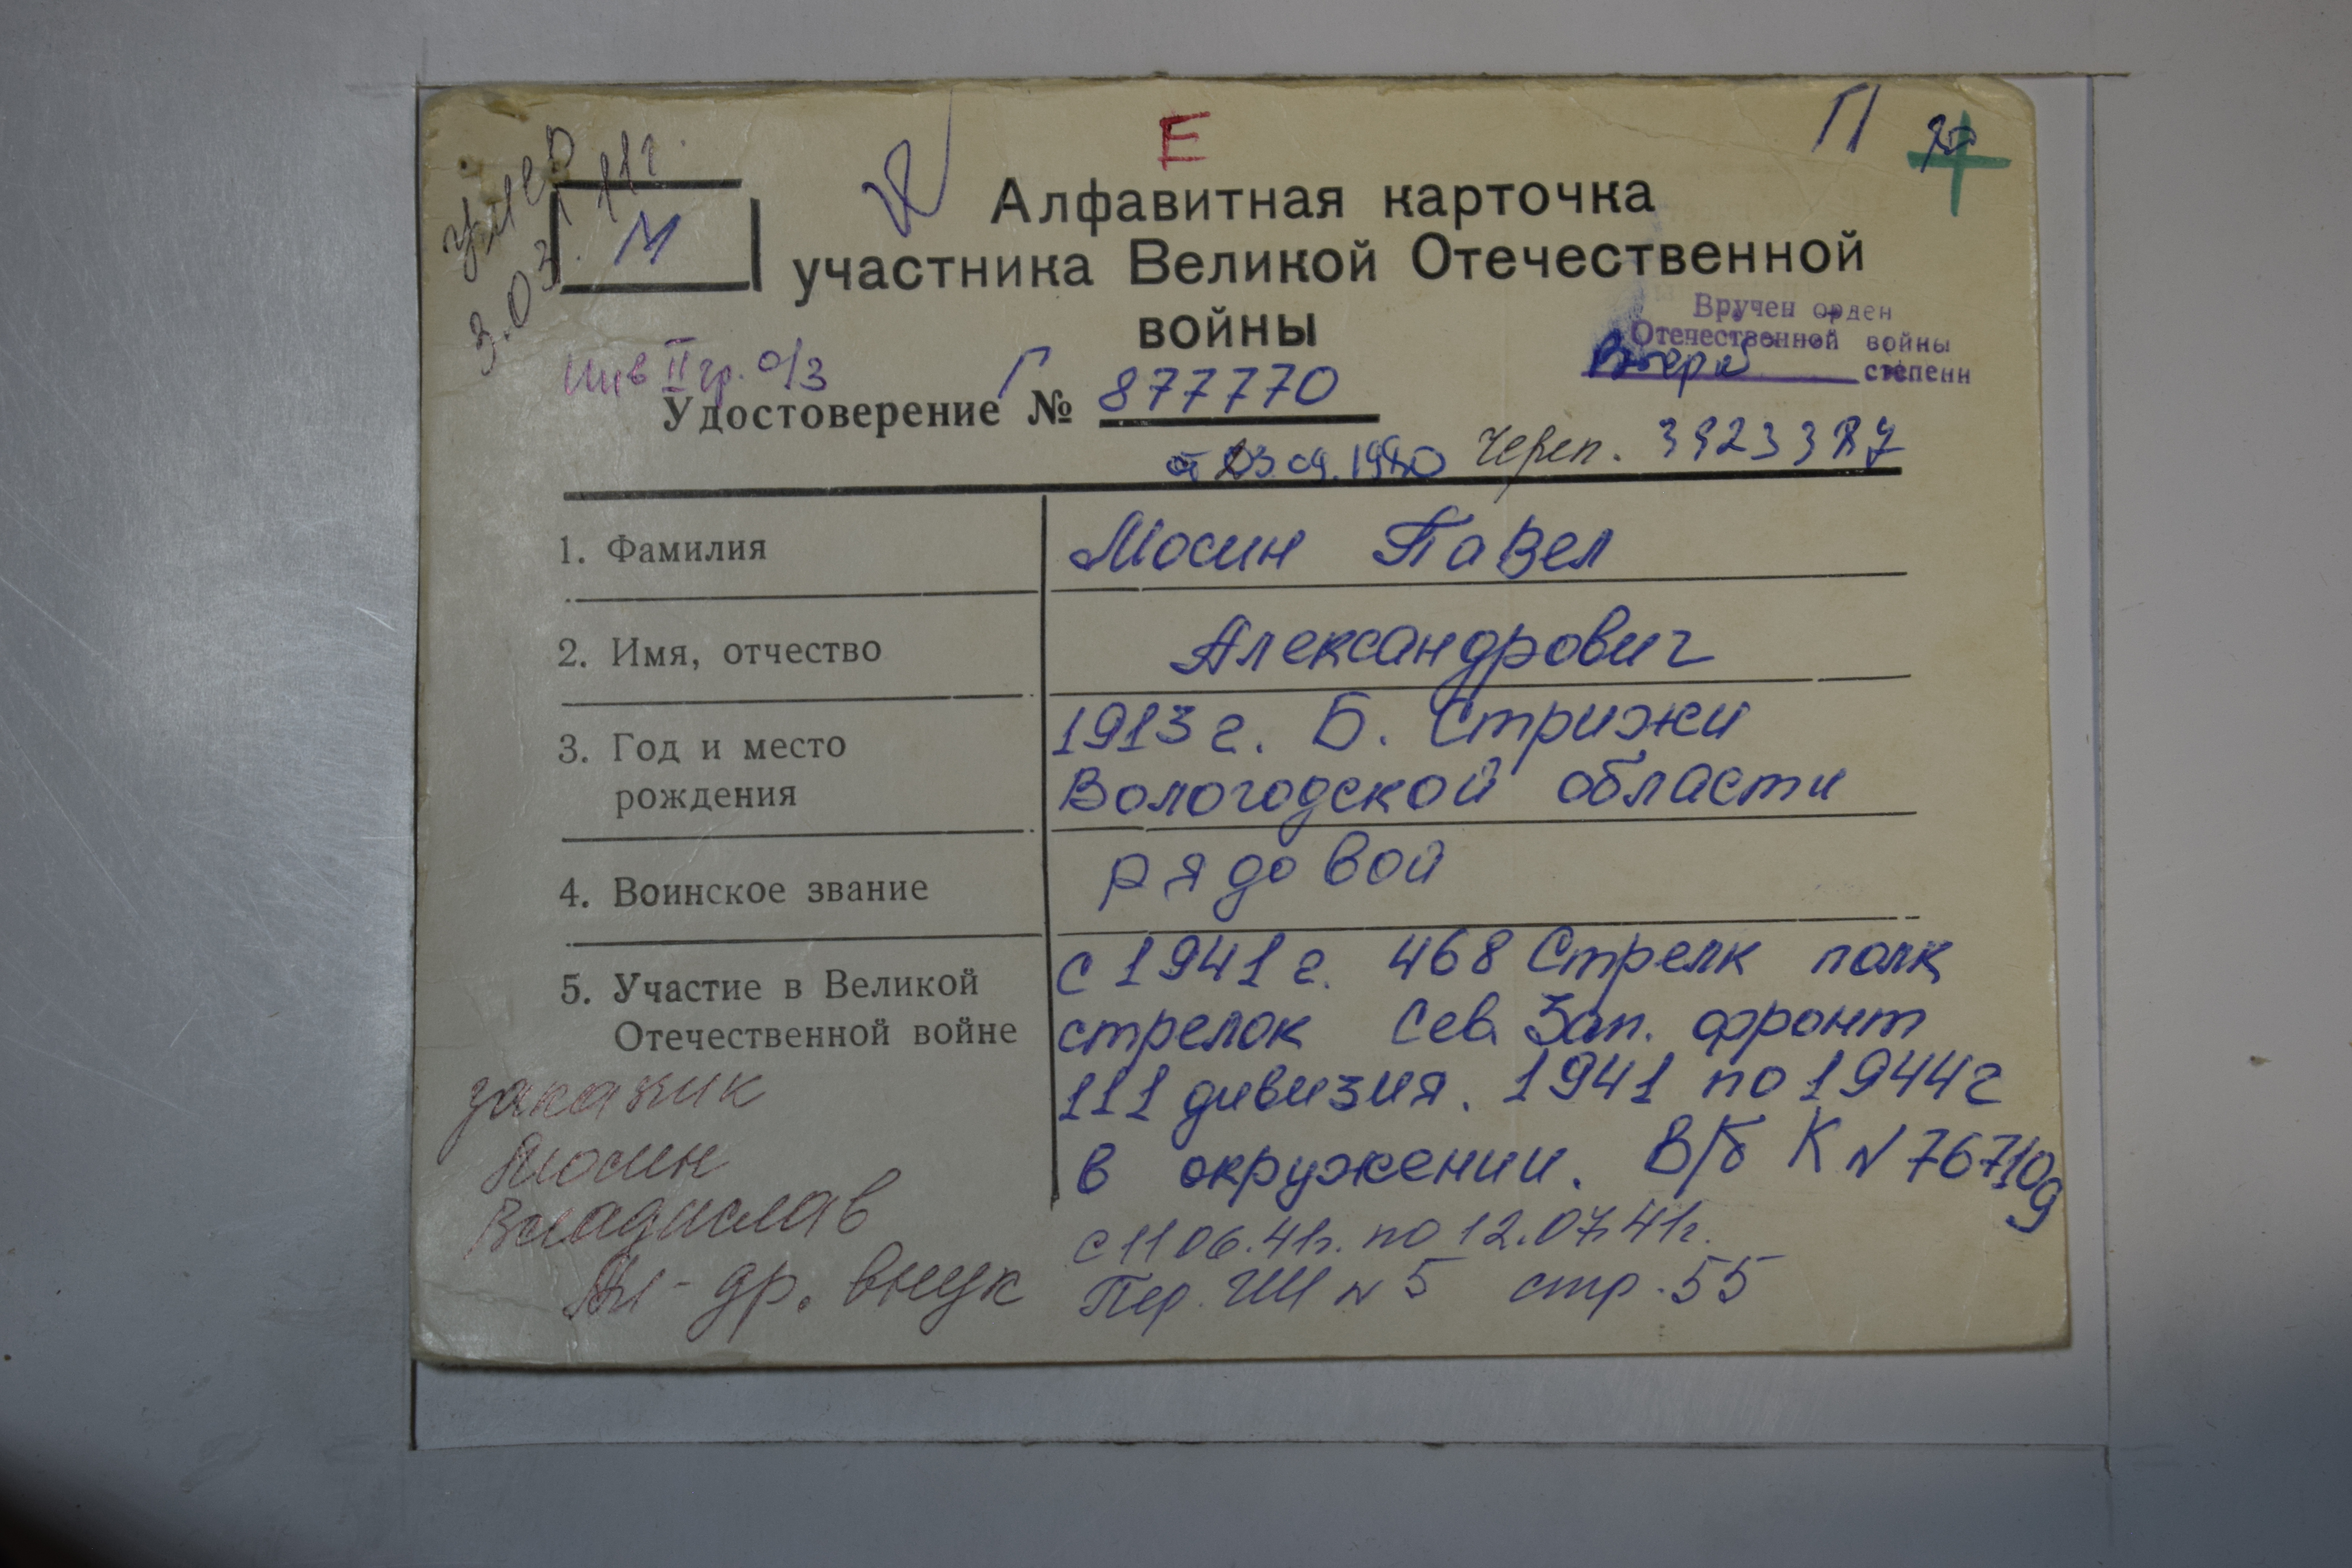 Е
П
умер
3.03.11г.
М
Алфавитная карточка
участника Великой Отечественной
войны
Вручен орден
Отечественной войны
Второй степени
Инв II гр. о/з
Г
Удостоверение № 877770
03 09.1980 Череп. 3923387
1. Фамилия Мосин Павел
2. Имя, отчество Александрович
3. Год и место 1913 г. Б. Стрижи
рождения Вологодской области
4. Воинское звание рядовой
5. Участие в Великой с 1941 г. 468 Стрелк полк
Отечественной войне стрелок Сев. Зап. фронт
111 дивизия. 1941 по 1944г
в окружении. В/б К N 767109
с 11 06.41г. по 12.07.41г.
Пер. N 5 стр. 55
Мосин
Владислав
внук